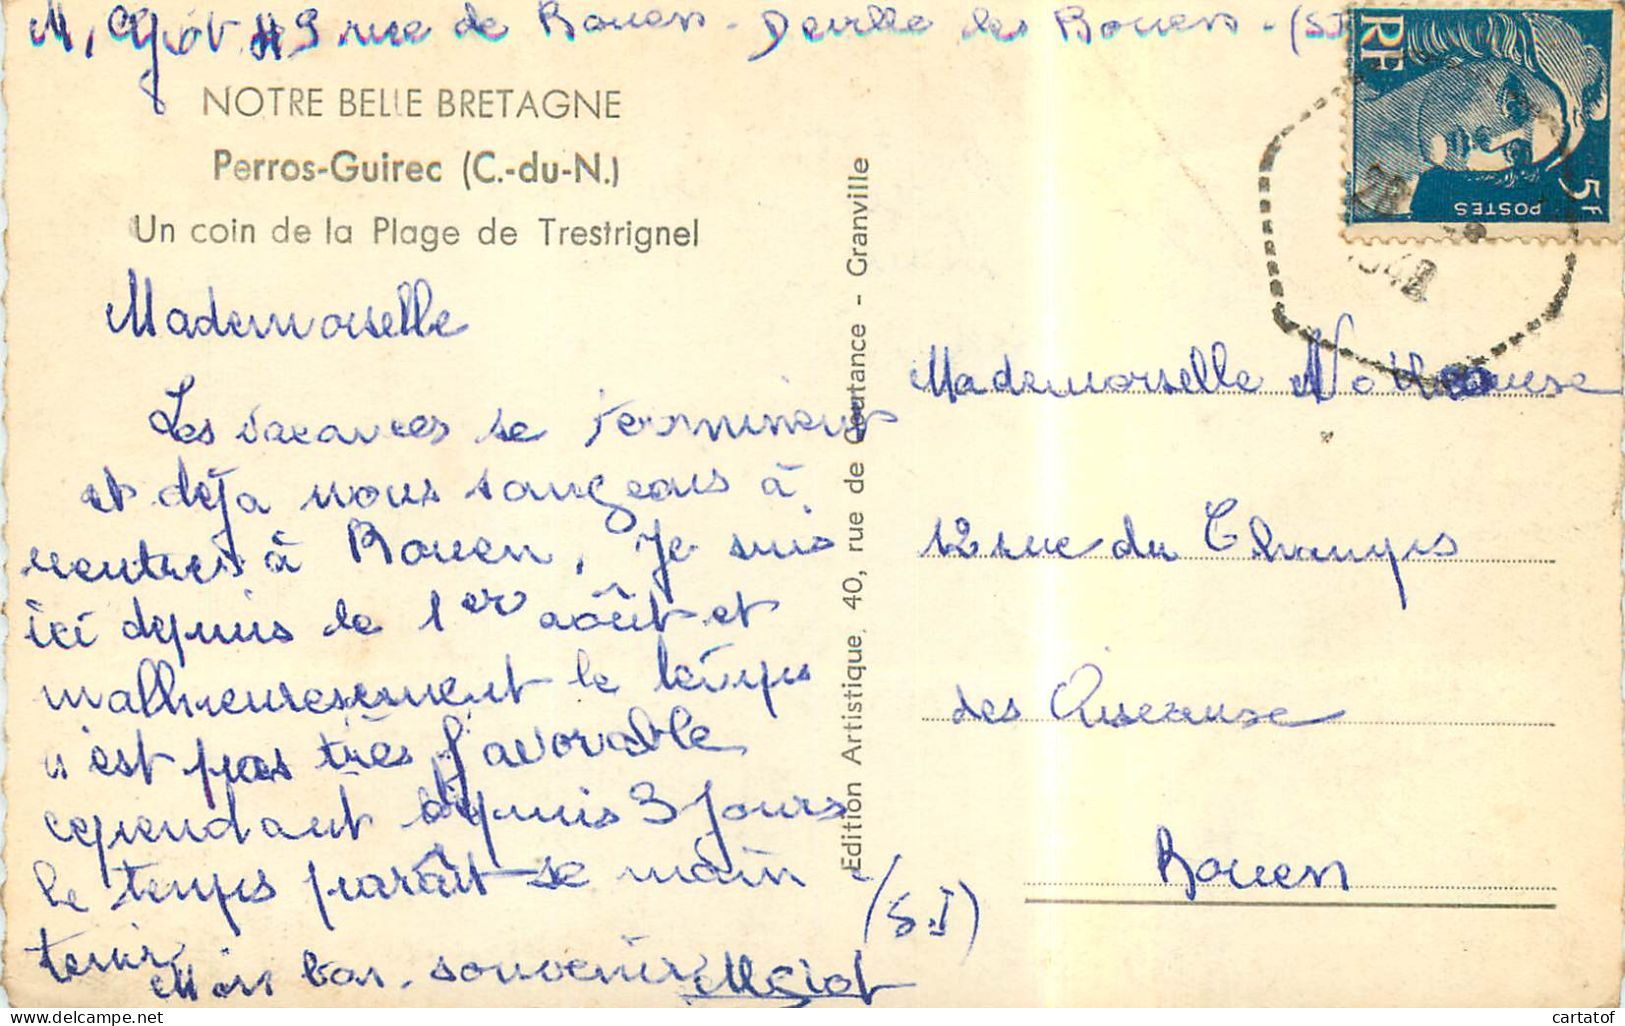 rue de Rouen - Deville les Rouen -
NOTRE BELLE BRETAGNE
Perros-Guirec (C.-du-N.)
Un coin de la Plage de Trestrignel
RF
5F
POSTES
Mademoiselle
Les vacances se terminent
et déja nous songeons à
rentrer à Rouen, Je suis
ici depuis le 1er août et
malheureusement le temps
n'est pas très favorable
cependant depuis 3 jours
le temps paraît se main
tenir
Mon bon souvenir
(S.I)
Edition Artistique, 40, rue de Coutance - Granville
Mademoiselle
12 rue du Champs
des Oiseaux
Rouen
cartatof